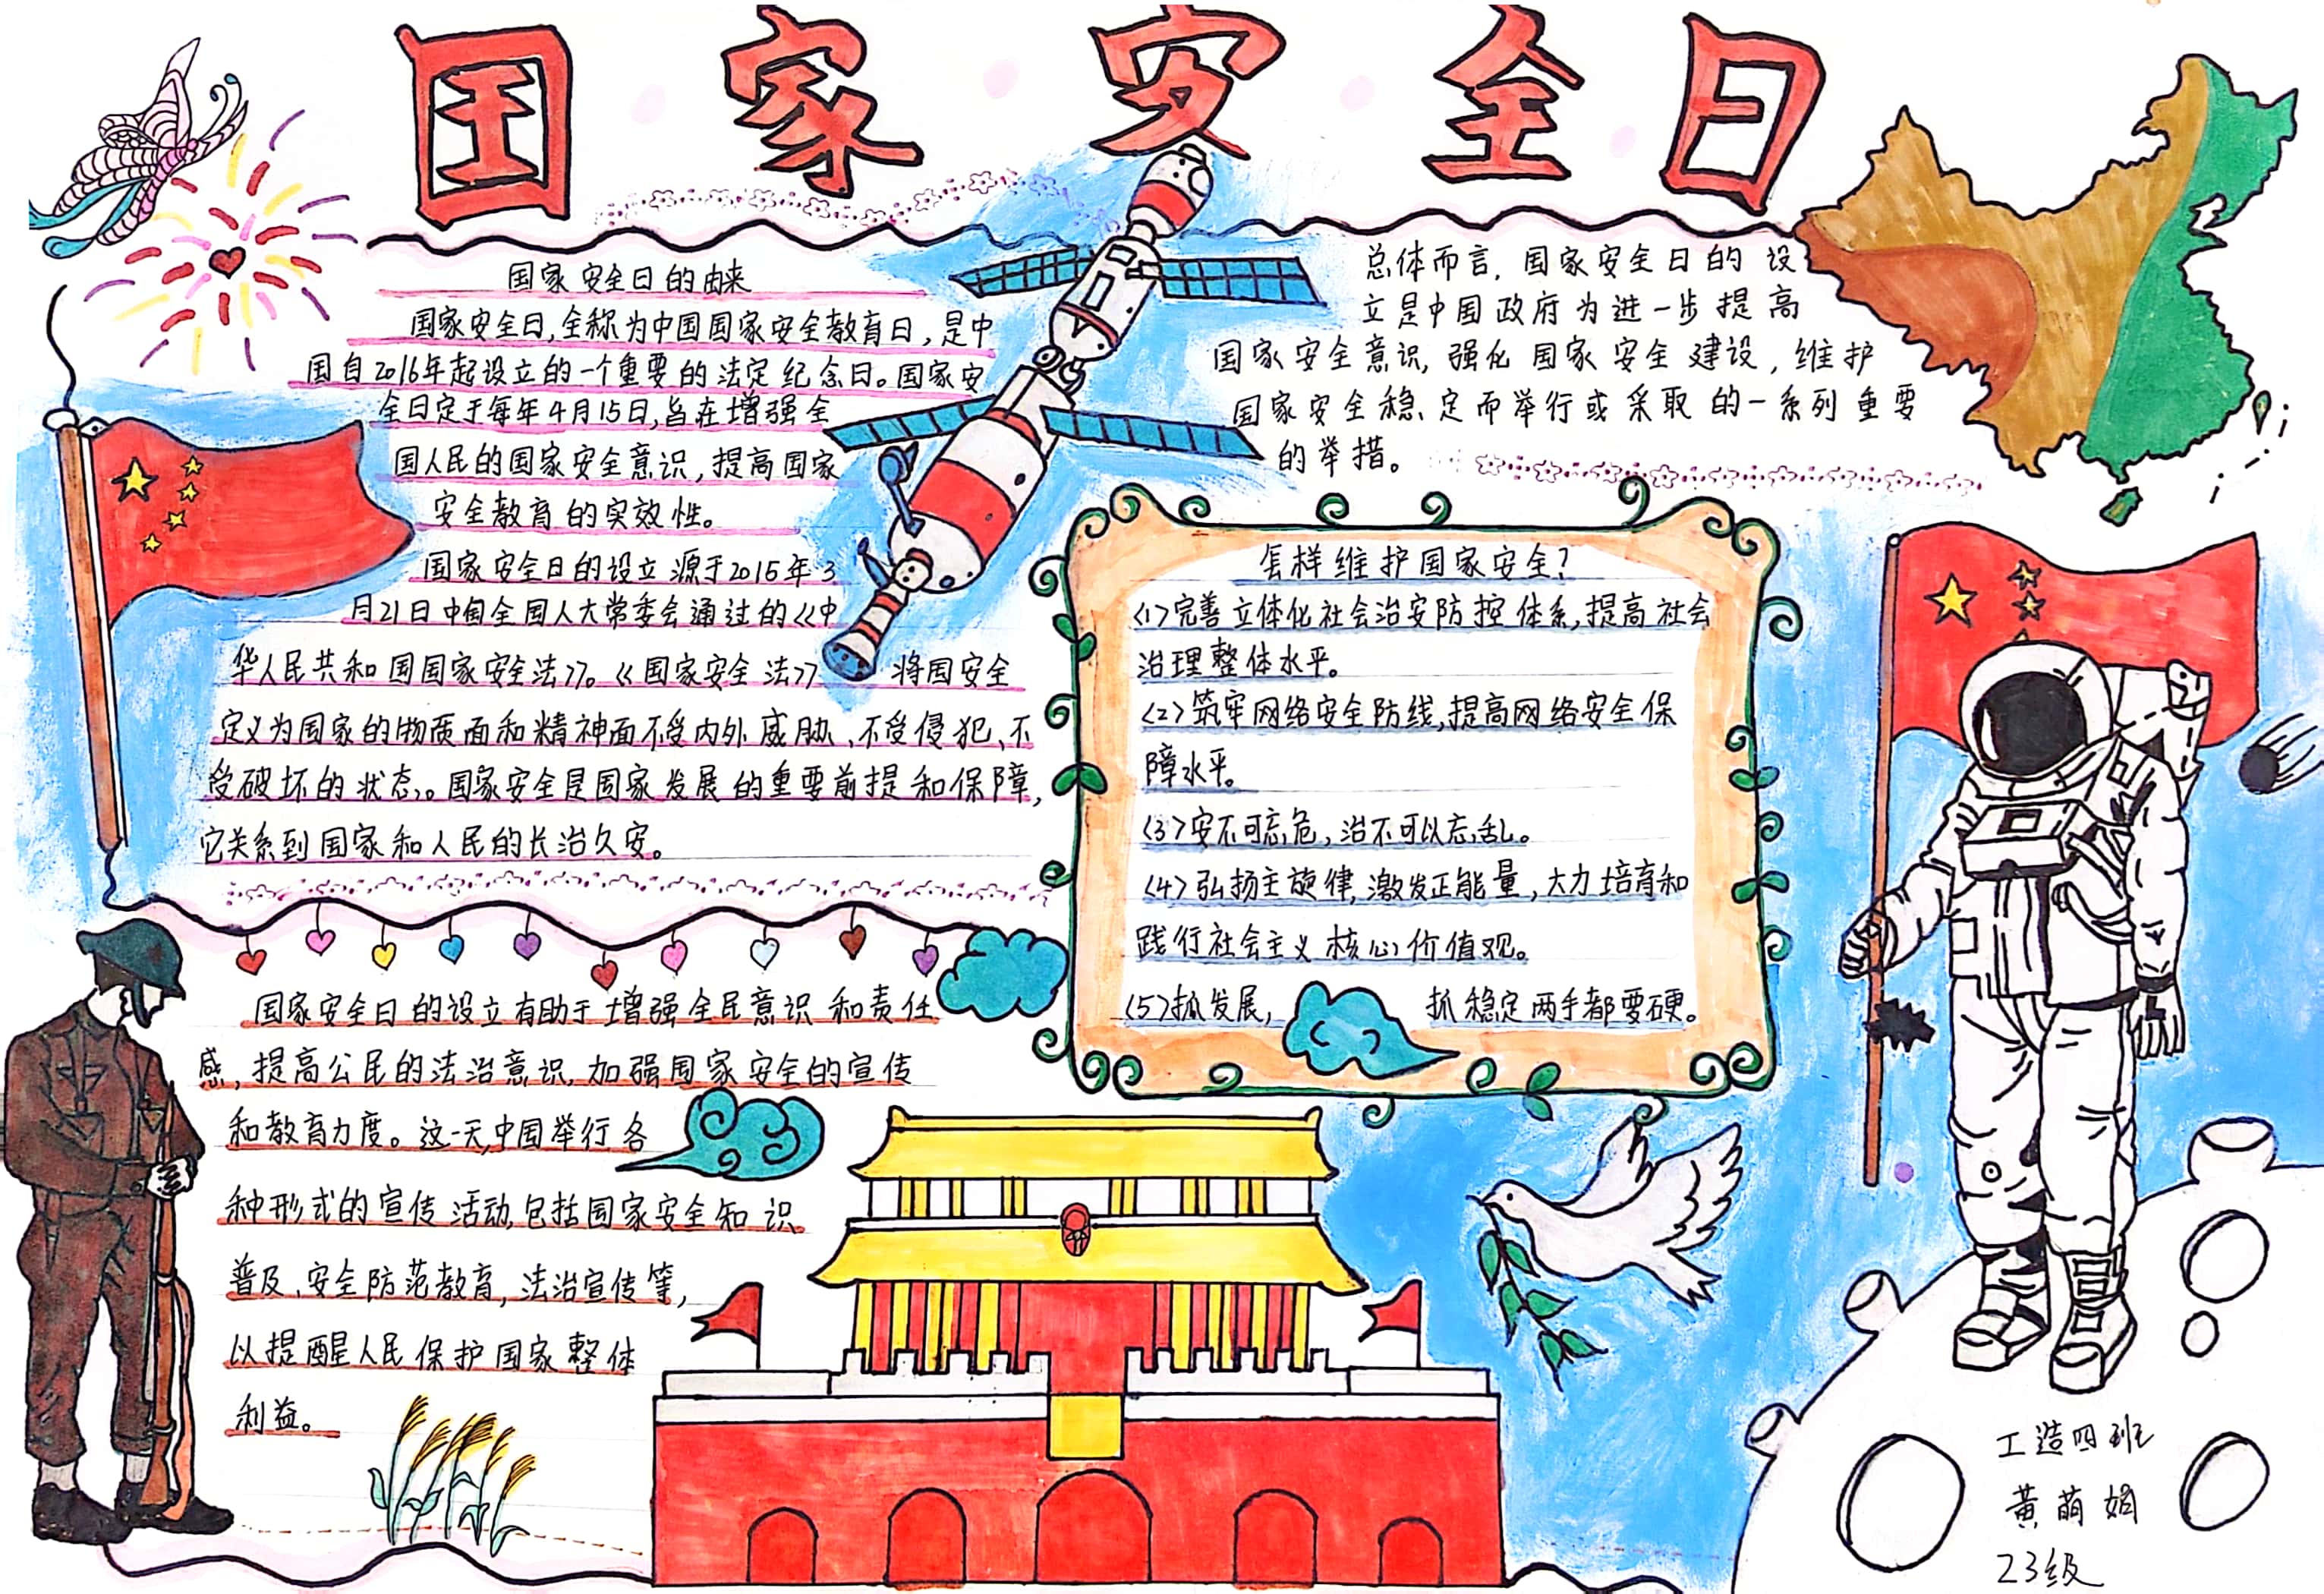 国家安全日
国家安全日的由来
国家安全日,全称为中国国家安全教育日,是中
国自2016年起设立的一个重要的法定纪念日。国家安
全日定于每年4月15日,旨在增强全
国人民的国家安全意识,提高国家
安全教育的实效性。
国家安全日的设立源于2015年3
月21日中国全国人大常委会通过的《中
华人民共和国国家安全法》。《国家安全法》将国安全
定义为国家的物质面和精神面不受内外威胁、不受侵犯、不
受破坏的状态。国家安全是国家发展的重要前提和保障,
它关系到国家和人民的长治久安。
国家安全日的设立有助于增强全民意识和责任
感,提高公民的法治意识,加强国家安全的宣传
和教育力度。这一天,中国举行各
种形式的宣传活动,包括国家安全知识
普及、安全防范教育,法治宣传等,
以提醒人民保护国家整体
利益。
总体而言,国家安全日的设
立是中国政府为进一步提高
国家安全意识,强化国家安全建设,维护
国家安全稳定而举行或采取的一系列重要
的举措。
怎样维护国家安全?
<1>完善立体化社会治安防控体系,提高社会
治理整体水平。
<2>筑牢网络安全防线,提高网络安全保
障水平。
<3>安不可忘危,治不可以忘乱。
<4>弘扬主旋律,激发正能量,大力培育和
践行社会主义核心价值观。
<5>抓发展,抓稳定两手都要硬。
工造四班
黄萌娟
23级